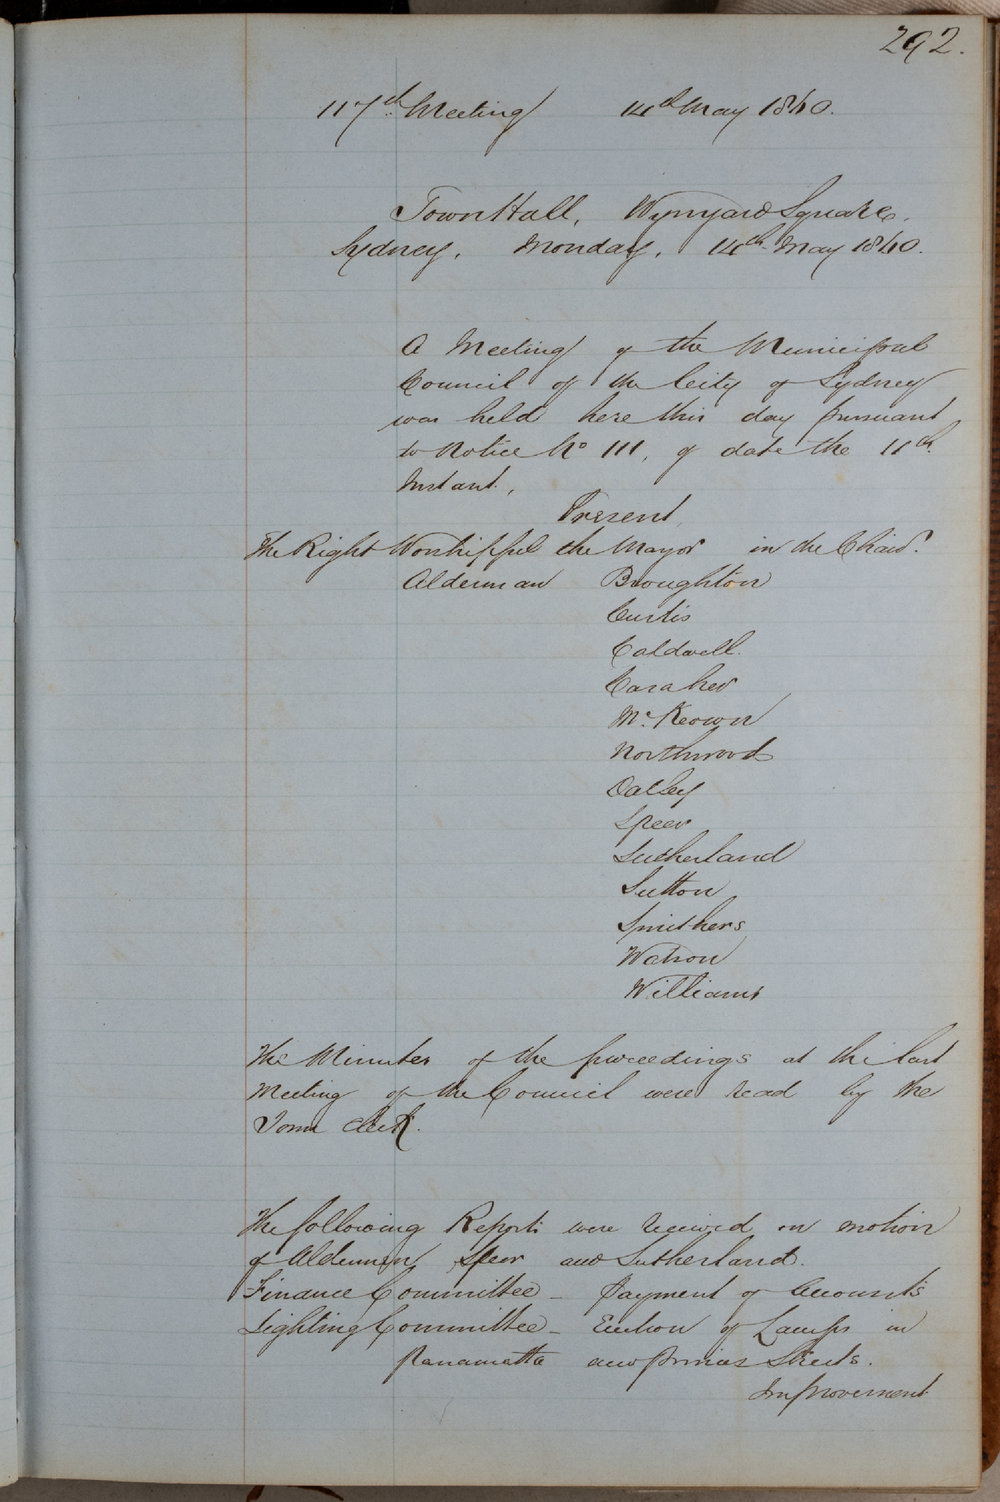 292.
117th Meeting 14th May 1860.
Town Hall, Wynyard Square.
Sydney, Monday, 14th May 1860.
A Meeting of the Municipal
Council of the City of Sydney
was held here this day pursuant
to Notice No 111, of date the 11th
Instant.,
Present,
The Right Worshipful the Mayor in the Chair.
Alderman Broughton
Curtis
Caldwell.
Caraher
Mc. Keown
Northwood
Oatley
Speer
Sutherland
Sutton
Smithers
Watson
Williams
The Minutes of the proceedings at the last
Meeting of the Council were read by the
Town Clerk.
The following Reports were received on motion
of Aldermen Speer and Sutherland.
Finance Committee - Payment of Accounts
Lighting Committee - Erection of Lamps in
Parramatta and Streets.
Improvement